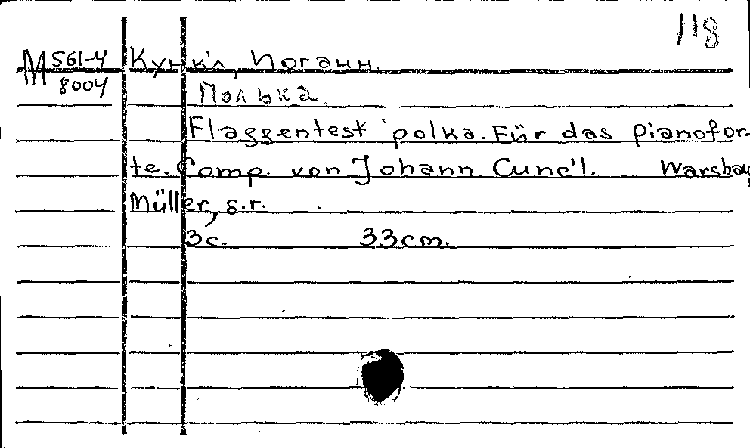 118
M 561-4 Кункл, Иоганн.
8004
Полька.
Flaggentest polka. Für das pianofor-
te. Comp. von Johann Cunc'l. Warshay
Müller, s.r.
3c. 33cm.